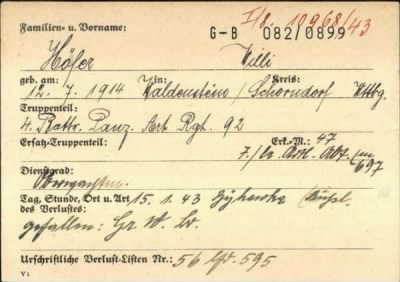 I/8. 10968/43
Familien- u. Vorname: G-B 082/0899
Höfer Willi
geb. am: in: Kreis:
12. 7. 1914 Waldenstein / Schorndorf Wttbg.
Truppenteil:
4. Battr. Panz. Art. Rgt. 92
Ersatz-Truppenteil: Erk.-M.: 47
7./le. Artl. Abt. 697
Dienstgrad:
Oberwachtm.
Tag, Stunde, Ort u. Art 15. 1. 43
des Verlustes:
gefallen: Gr. W.
Urschriftliche Verlust-Listen Nr.: 56 lfd. 595
V 1